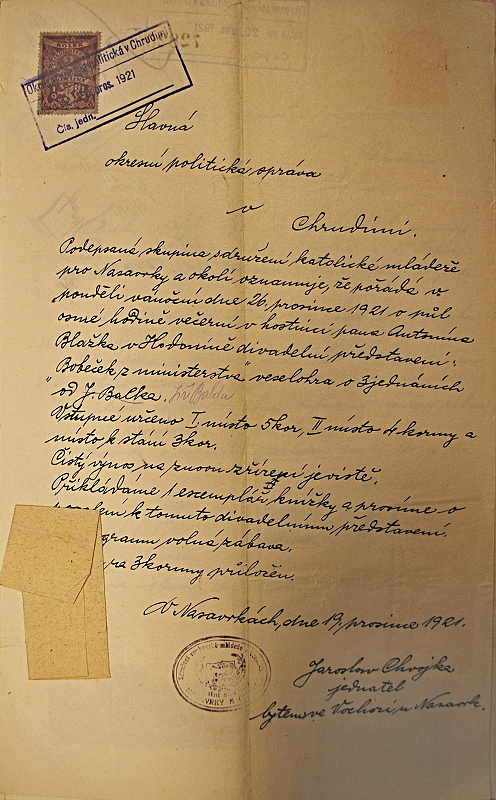 KOLEK
Okresní politická v Chrudimi
pros. 1921
Čís. jedn.
Slavná
okresní politická správa
v
Chrudimi.
Podepsaná skupina sdružení katolické mládeže
pro Nasavrky a okolí oznamuje, že pořádá v
pondělí vánoční dne 26. prosince 1921 o půl
osmé hodině večerní v hostinci pana Antonína
Blažka v Hodoníně divadelní představení:
"Bobeček z ministerstva" veselohra o 3 jednáních
od J. Balka. Jiří Balda
Vstupné určeno I. místo 5 kor, II místo 4 koruny a
místo k stání 3 kor.
Čistý výnos na znovu zřízení jeviště.
Přikládáme 1 exemplář knížky a prosíme o
k tomuto divadelnímu představení.
gramu volná zábava.
na 3 koruny přiložen.
V Nasavrkách, dne 19. prosince 1921.
Jaroslav Chvojka
jednatel
bytem ve Vochozi u Nasavrk.